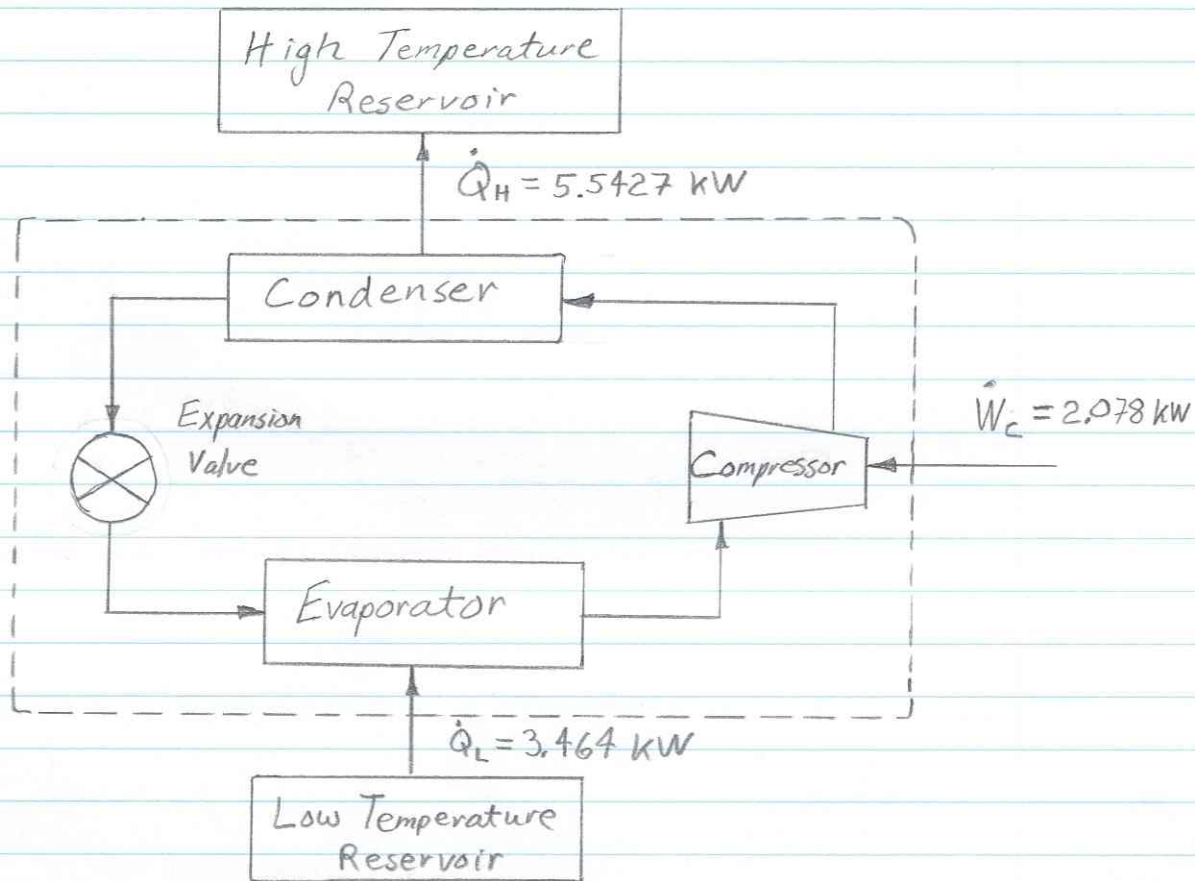 High Temperature
Reservoir
Q̇_H = 5.5427 kW
Condenser
Expansion
Valve
Ẇ_c = 2.078 kW
Compressor
Evaporator
Q̇_L = 3.464 kW
Low Temperature
Reservoir